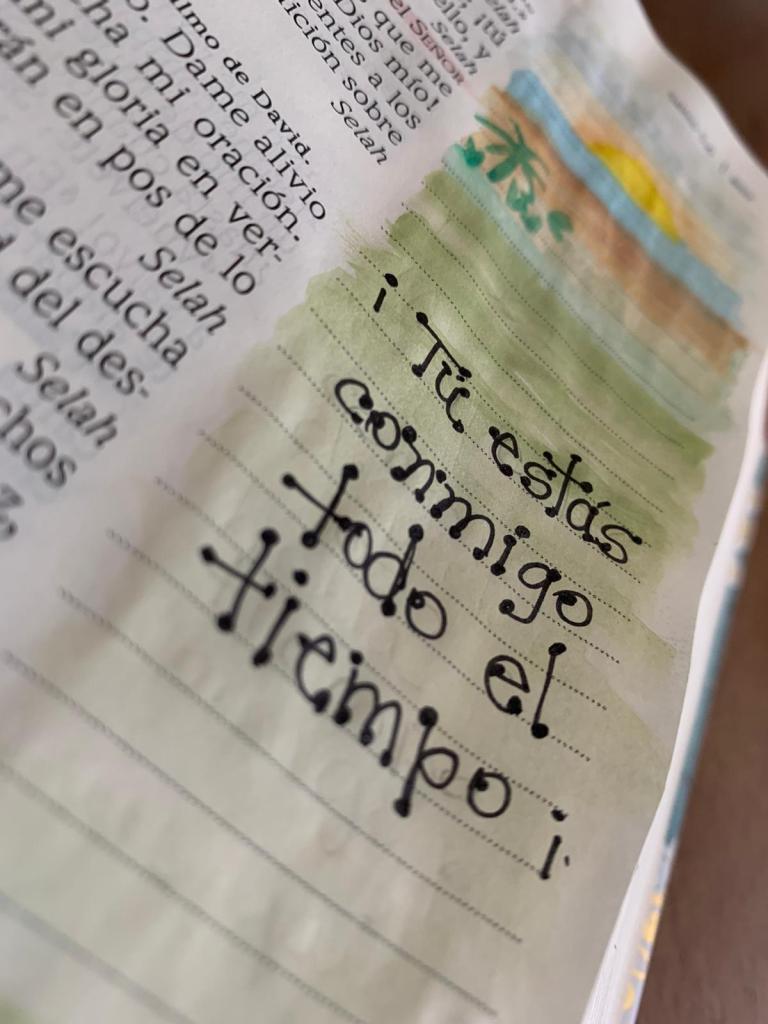 Selah
¡Tú
ello, y
Selah
el SEÑOR
que me
¡Dios mío!
entes a los
ición sobre
Selah
almo de David.
Dame alivio
cha mi oración.
mi gloria en ver-
rán en pos de lo
Selah
me escucha
del des-
Selah
chos
z,
¡Tú estás
conmigo
todo el
tiempo¡